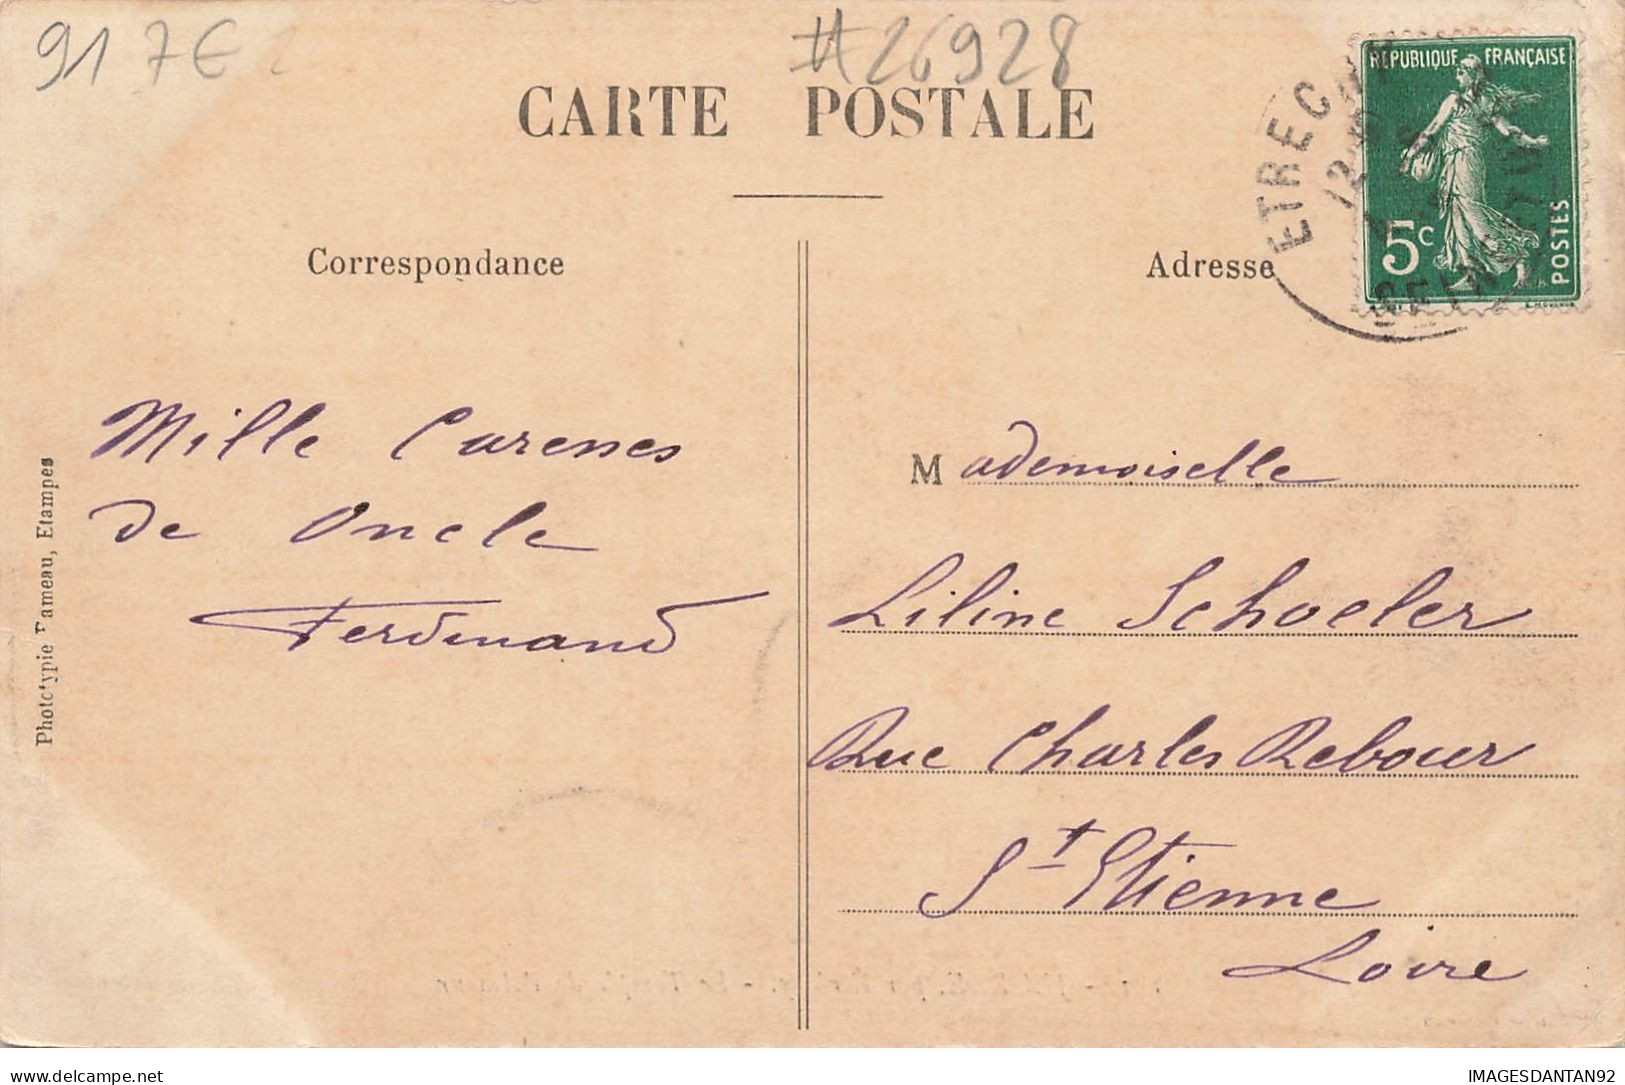 91 7€
#26928
CARTE POSTALE
RÉPUBLIQUE FRANÇAISE
5c
POSTES
ETREC
SEINE
Correspondance
Adresse
Mille Caresses
de Oncle
Ferdinand
Mademoiselle
Liline Schoeler
Rue Charles Rebour
St Etienne
Loire
Phototypie Rameau, Etampes
www.delcampe.net
IMAGESDANTAN92